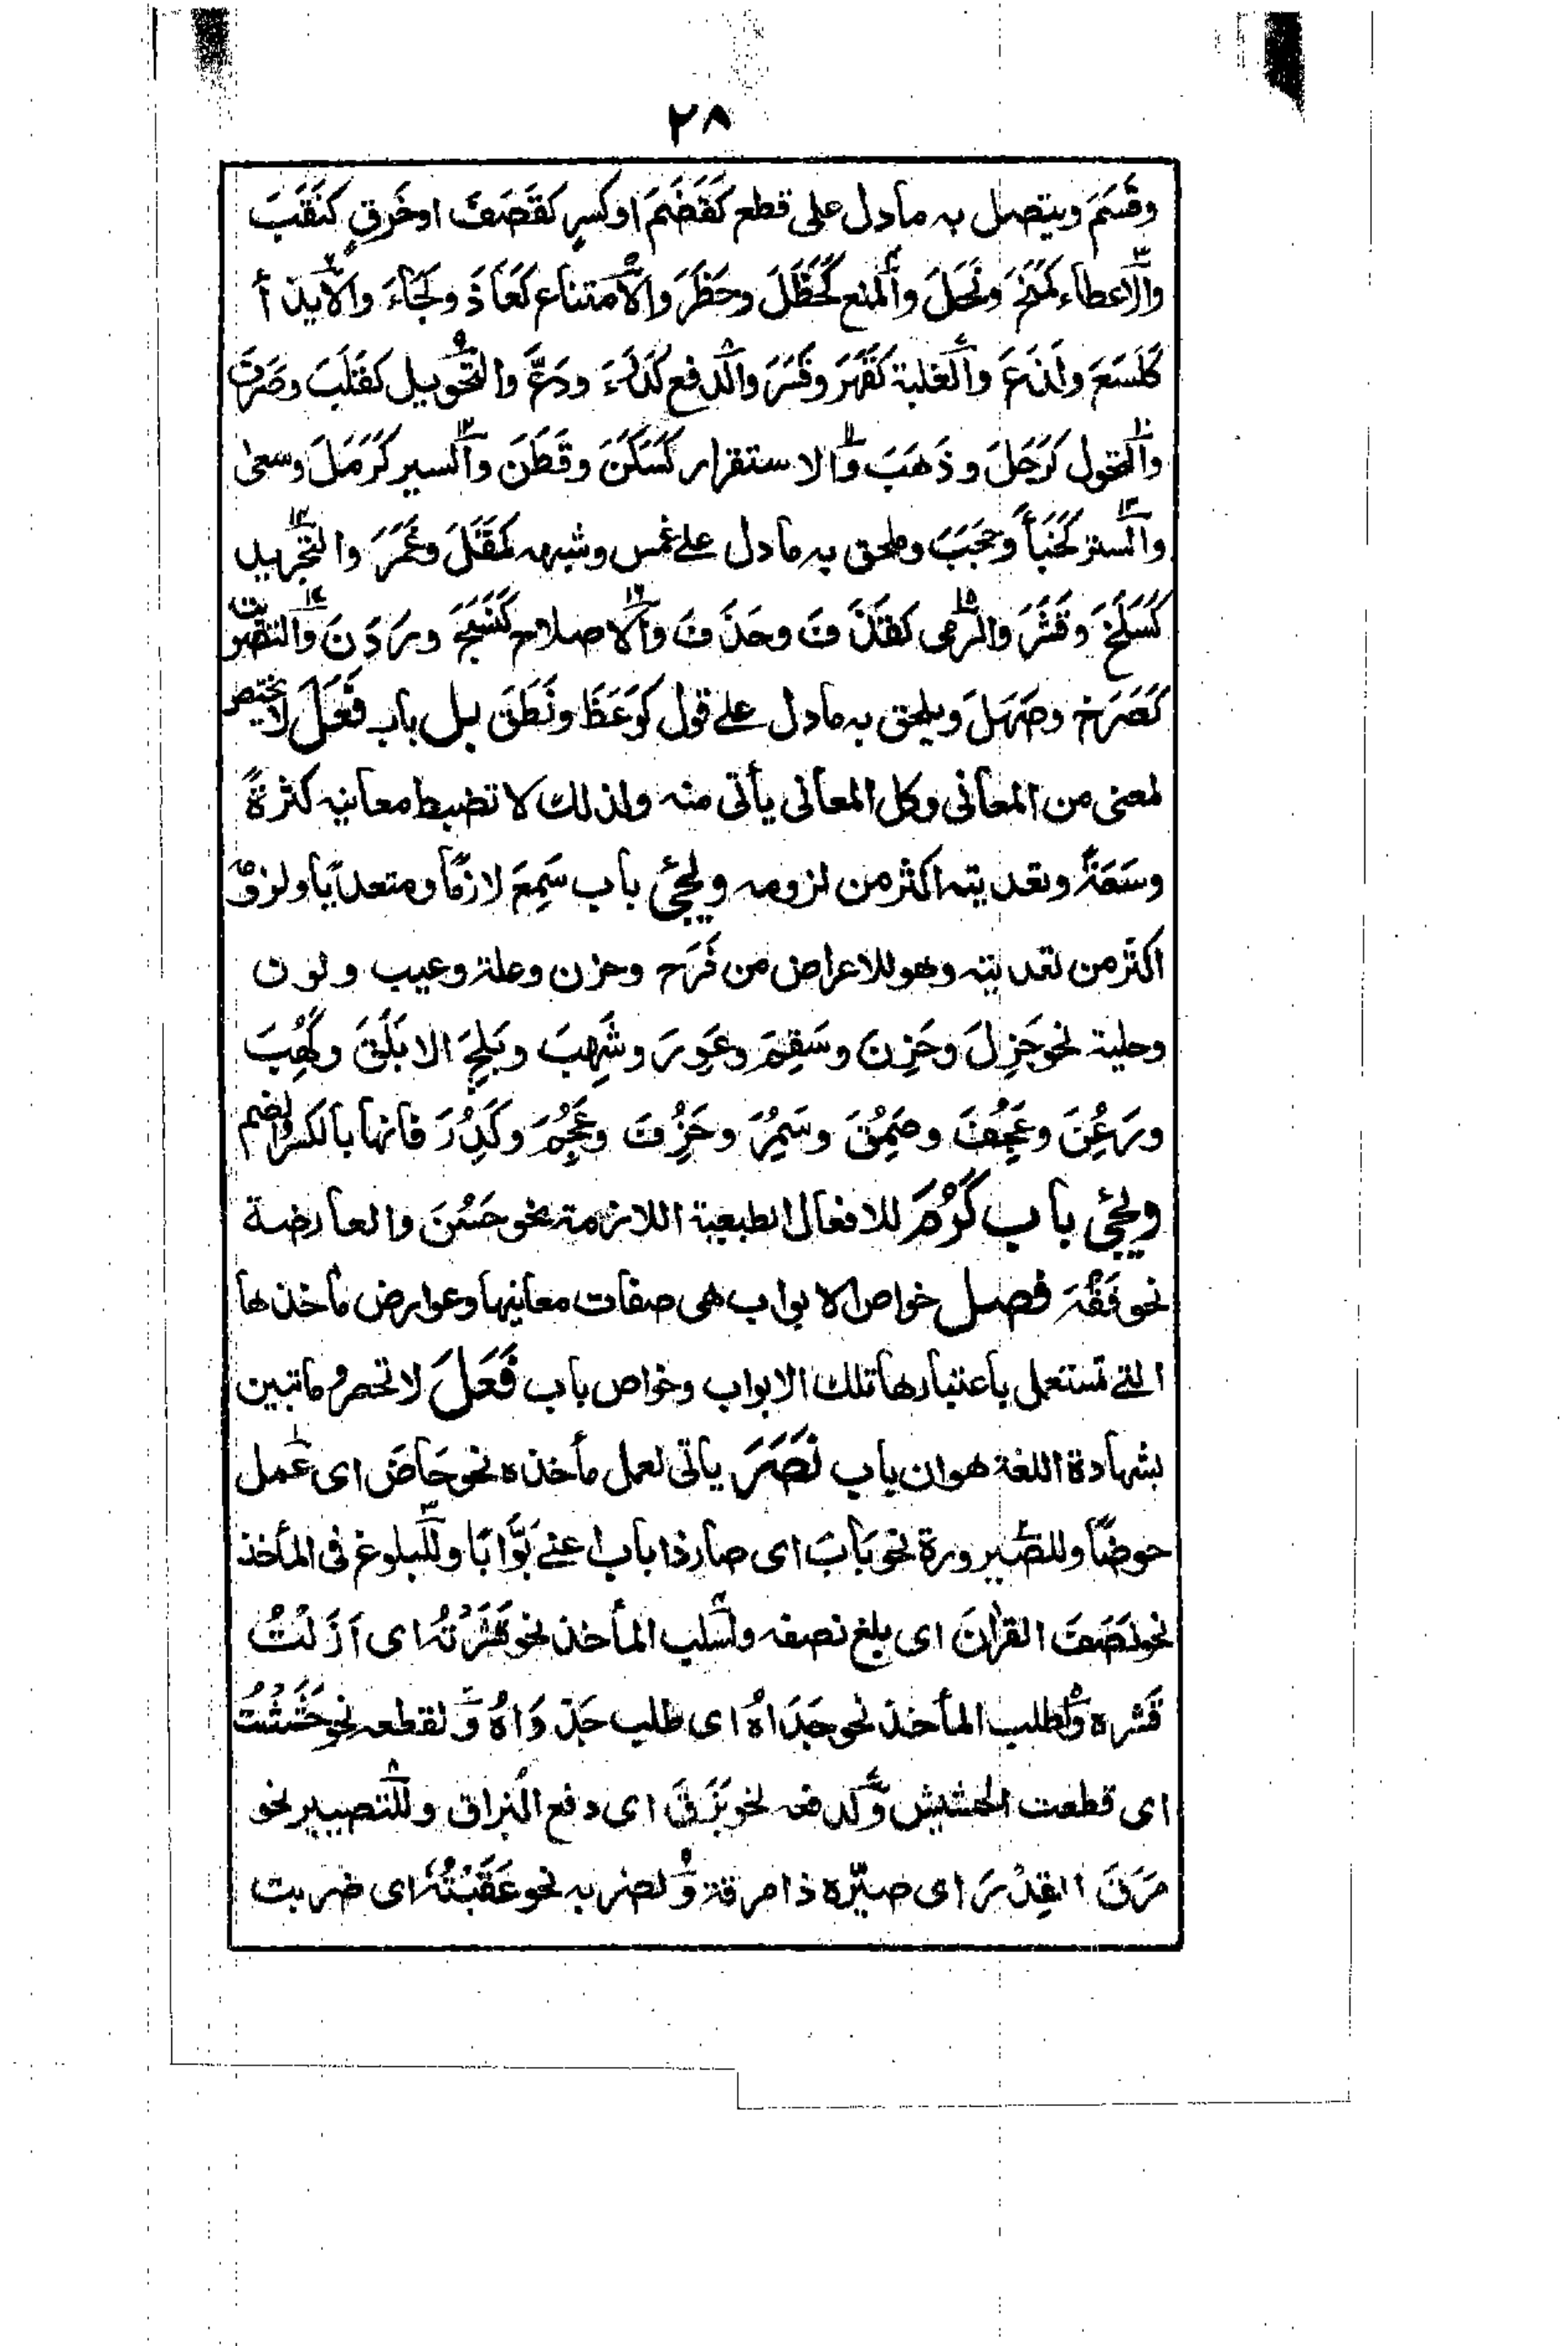 ٢٨
وقَسَمَ ويتصل به مادل على قطع كَقَضَمَ اوكسرٍ كقَصَفَ اوخَرقٍ كنَقَبَ
والاعطاء كمَنَحَ ونَحَلَ والمنع كحَظَلَ وحَظَرَ والامتناع كعَاذَ ولَجَاءَ والايذاء
كَلَسَعَ ولَذَعَ والغلبة كقَهَرَ وقَسَرَ والدفع كدَرَءَ ودَعَّ والتحويل كقَلَبَ وصَرَفَ
والتحول كرَحَلَ وذَهَبَ والاستقرار كسَكَنَ وقَطَنَ والسير كرَمَلَ وسعى
والستر كخَبَأَ وحَجَبَ وملحق به مادل على غمس وشبهه كمَقَلَ وغَمَرَ والتجريد
كسَلَخَ وقَشَرَ والرمى كقَذَفَ وحَذَفَ والاصلاح كنَسَجَ ورَدَنَ والتصويت
كصَرَخ وصَهَلَ ويلحق به مادل على قول كوَعَظَ ونَطَقَ بل باب فَعَلَ لا يختص
لمعنى من المعانى وكل المعانى يأتى منه ولذلك لا تضبط معانيه كثرةً
وسَعَةً وتعديته اكثر من لزومه ويجئ باب سَمِعَ لازمًا ومتعديًا ولزومه
اكثر من تعديته وهو للاعراض من فَرَح وحزن وعلة وعيب ولون
وحلية نحو جَزِلَ وحَزِنَ وسَقِمَ وعَوِرَ وشَهِبَ وبَلِجَ الابَلَقَ وكَهِبَ
ورَعِنَ وعَجِفَ وحَمِقَ وسَمِرَ وخَرِفَ وعَجِمَ وكَدِرَ فانها بالكسر والضم
ويجئ باب كَرُمَ للافعال الطبعية اللازمة نحو حَسُنَ والعارضة
نحو فَقُهَ فصل خواص الابواب هى صفات معانيها وعوارض مأخذها
التى تستعمل باعتبارها تلك الابواب وخواص باب فَعَلَ لا تحصر وماتبين
بشهادة اللغة هو ان باب نَصَرَ ياتى لعمل مأخذه نحو حَاضَ اى عمل
حوضًا وللصيرورة نحو بَابَ اى صار ذا باب اعنى بَوَّابًا وللبلوغ فى المأخذ
نحو نَصَفَ القرآنَ اى بلغ نصفه ولسلب المأخذ نحو قَشَرْتُهُ اى اَزَلْتُ
قَشره ولطلب المأخذ نحو جَدَاهُ اى طلب جَدْوَاهُ ولقطعه نحو حَشَشْتُ
اى قطعت الحشيش ولدفعه نحو بَزَقَ اى دفع البزاق وللتصيير نحو
مَرَقَ القِدْرَ اى صيّره ذا مرقة ولضربه نحو عَقَبْتُهُ اى ضربت